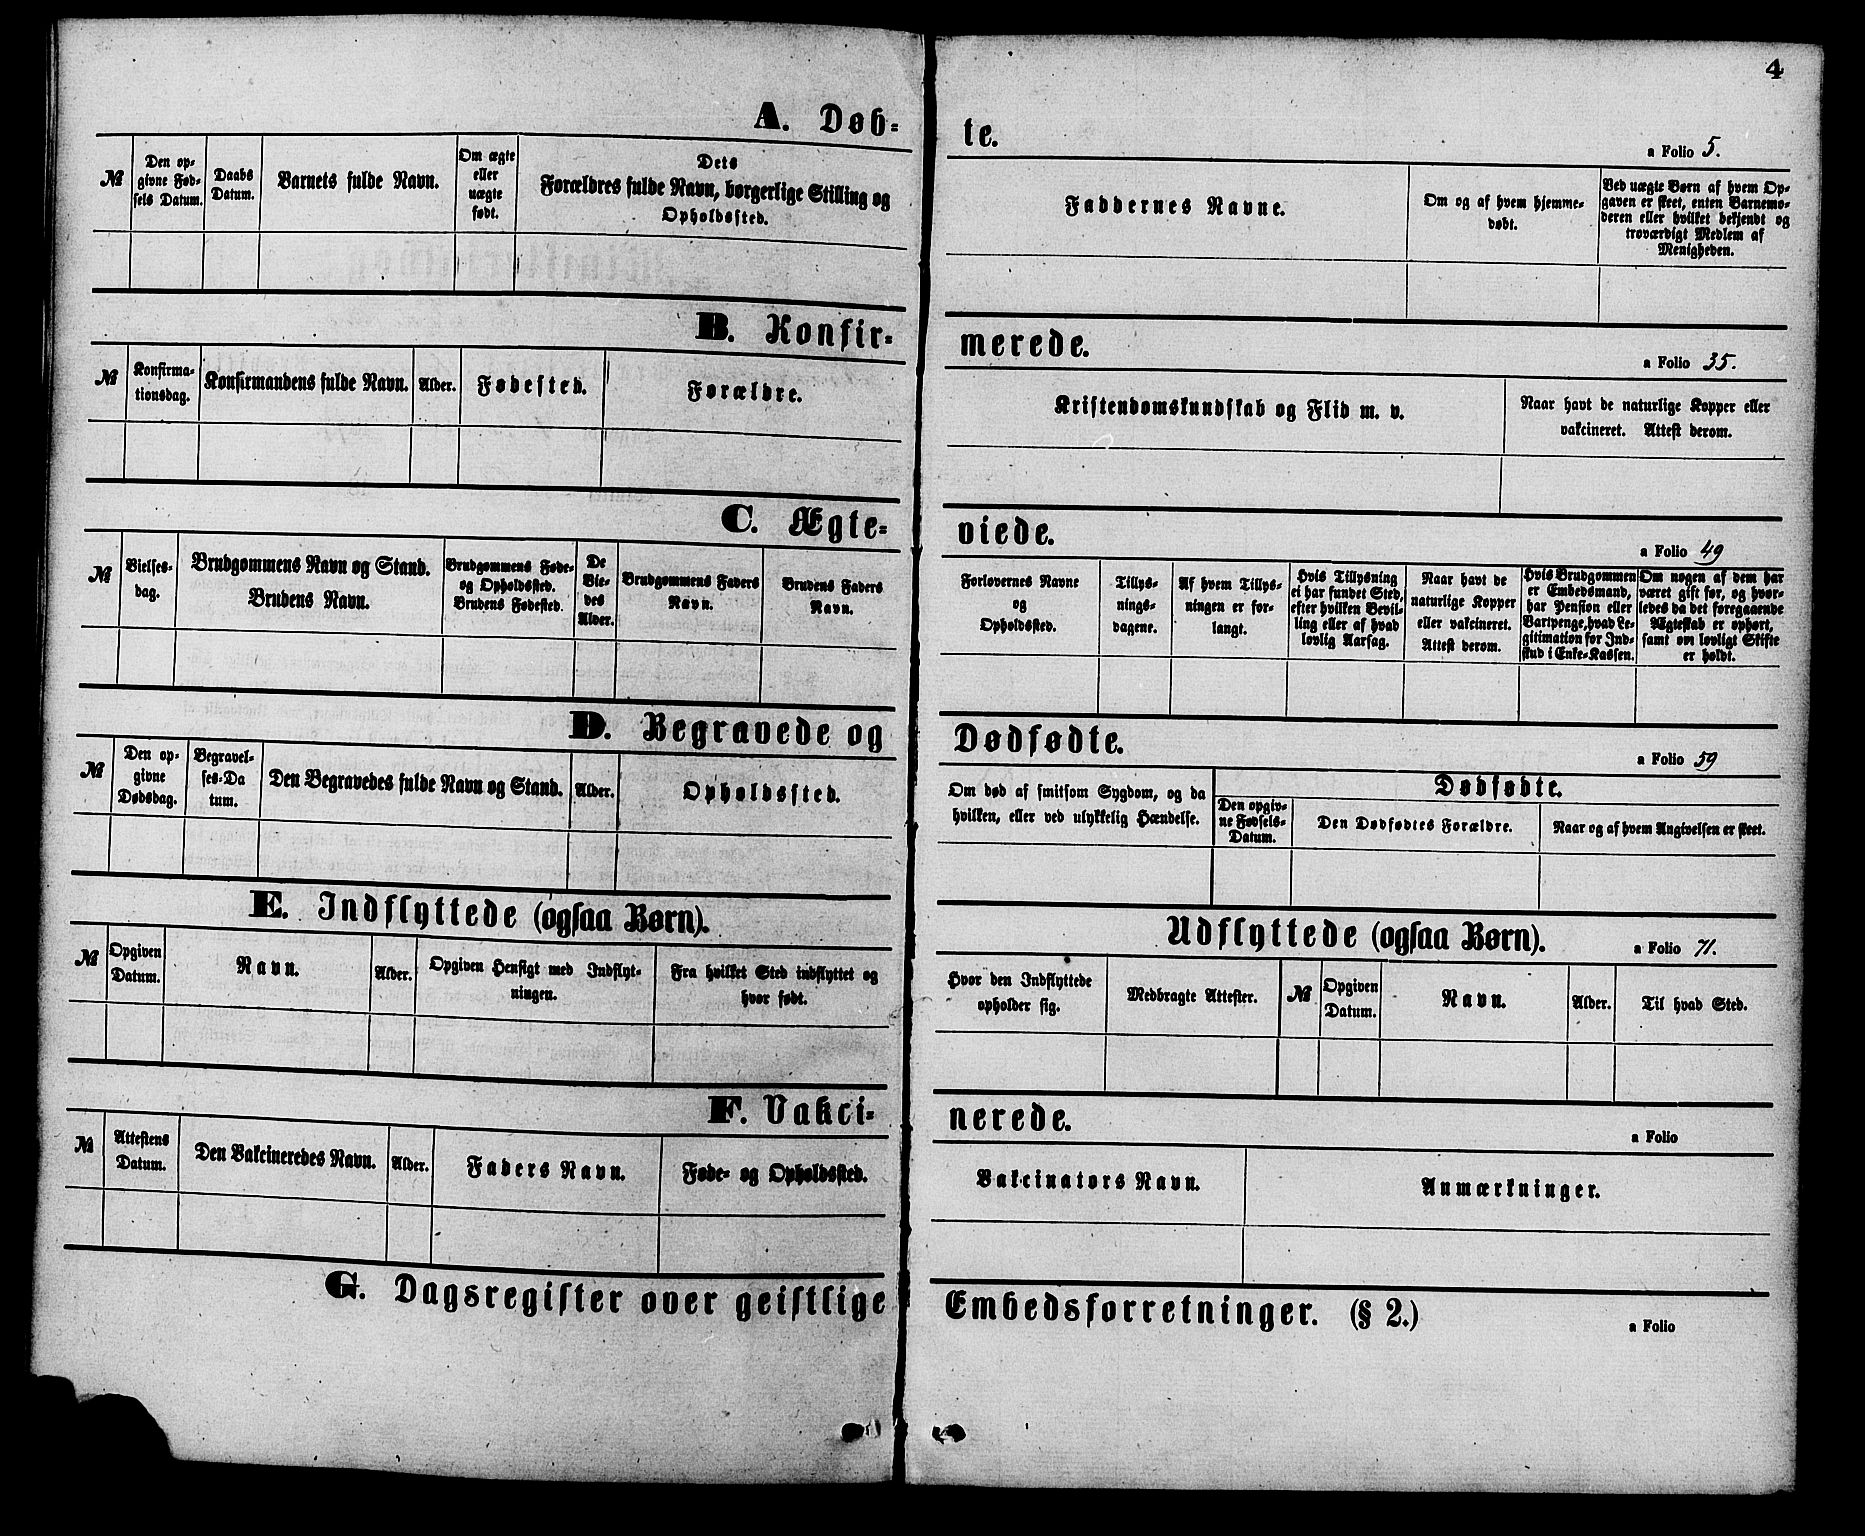 4
A. Døb-
te.
a Folio 5.
№
Den op-
givne Fød-
sels Datum.
Daabs
Datum.
Barnets fulde Navn.
Om ægte
eller
uægte
født.
Dets
Forældres fulde Navn, borgerlige Stilling og
Opholdssted.
Faddernes Navne.
Om og af hvem hjemme-
døbt.
Ved uægte Børn af hvem Op-
gaven er skeet, enten Barnemo-
deren eller hvilket bekjendt og
troværdigt Medlem af
Menigheden.
B. Konfir-
merede.
a Folio 35.
№
Konfirma-
tionsdag.
Konfirmandens fulde Navn.
Alder.
Fødested.
Forældre.
Kristendomskundskab og Flid m. v.
Naar havt de naturlige Kopper eller
vakcineret. Attest derom.
C. Ægte-
viede.
a Folio 49
№
Vielses-
dag.
Brudgommens Navn og Stand.
Brudens Navn.
Brudgommens Føde-
og Opholdssted.
Brudens Fødested.
De
Vie-
des
Alder.
Brudgommens Faders
Navn.
Brudens Faders
Navn.
Forlovernes Navne
og
Opholdssted.
Tillys-
nings-
dagene.
Af hvem Tillys-
ningen er for-
langt.
Hvis Tillysning
ei har fundet Sted,
efter hvilken Bevil-
ling eller af hvad
lovlig Aarsag.
Naar havt de
naturlige Kopper
eller vakcineret.
Attest derom.
Hvis Brudgommen
er Embedsmand,
har Pension eller
Vartpenge, hvad Le-
gitimation for Ind-
skud i Enke-Kassen.
Om nogen af dem har
været gift før, og hvor-
ledes da det foregaaende
Ægteskab er ophørt,
samt om lovligt Skifte
er holdt.
D. Begravede og
Dødfødte.
a Folio 59
№
Den op-
givne
Dødsdag.
Begravel-
ses-Da
tum.
Den Begravedes fulde Navn og Stand.
Alder.
Opholdssted.
Om død af smitsom Sygdom, og da
hvilken, eller ved ulykkelig Hændelse.
Dødfødte.
Den opgiv-
ne Fødsels-
Datum.
Den Dødfødtes Forældre.
Naar og af hvem Angivelsen er skeet.
E. Indflyttede (ogsaa Børn).
Udflyttede (ogsaa Børn).
a Folio 71.
№
Opgiven
Datum.
Navn.
Alder.
Opgiven Hensigt med Indflyt-
ningen.
Fra hvilket Sted indflyttet og
hvor født.
Hvor den Indflyttede
opholder sig.
Medbragte Attester.
№
Opgiven
Datum.
Navn.
Alder.
Til hvad Sted.
F. Vakci-
nerede.
a Folio
№
Attestens
Datum.
Den Vakcineredes Navn.
Alder.
Faders Navn.
Føde- og Opholdssted.
Vakcinators Navn.
Anmærkninger.
G. Dagsregister over geistlige
Embedsforretninger. (§ 2.)
a Folio